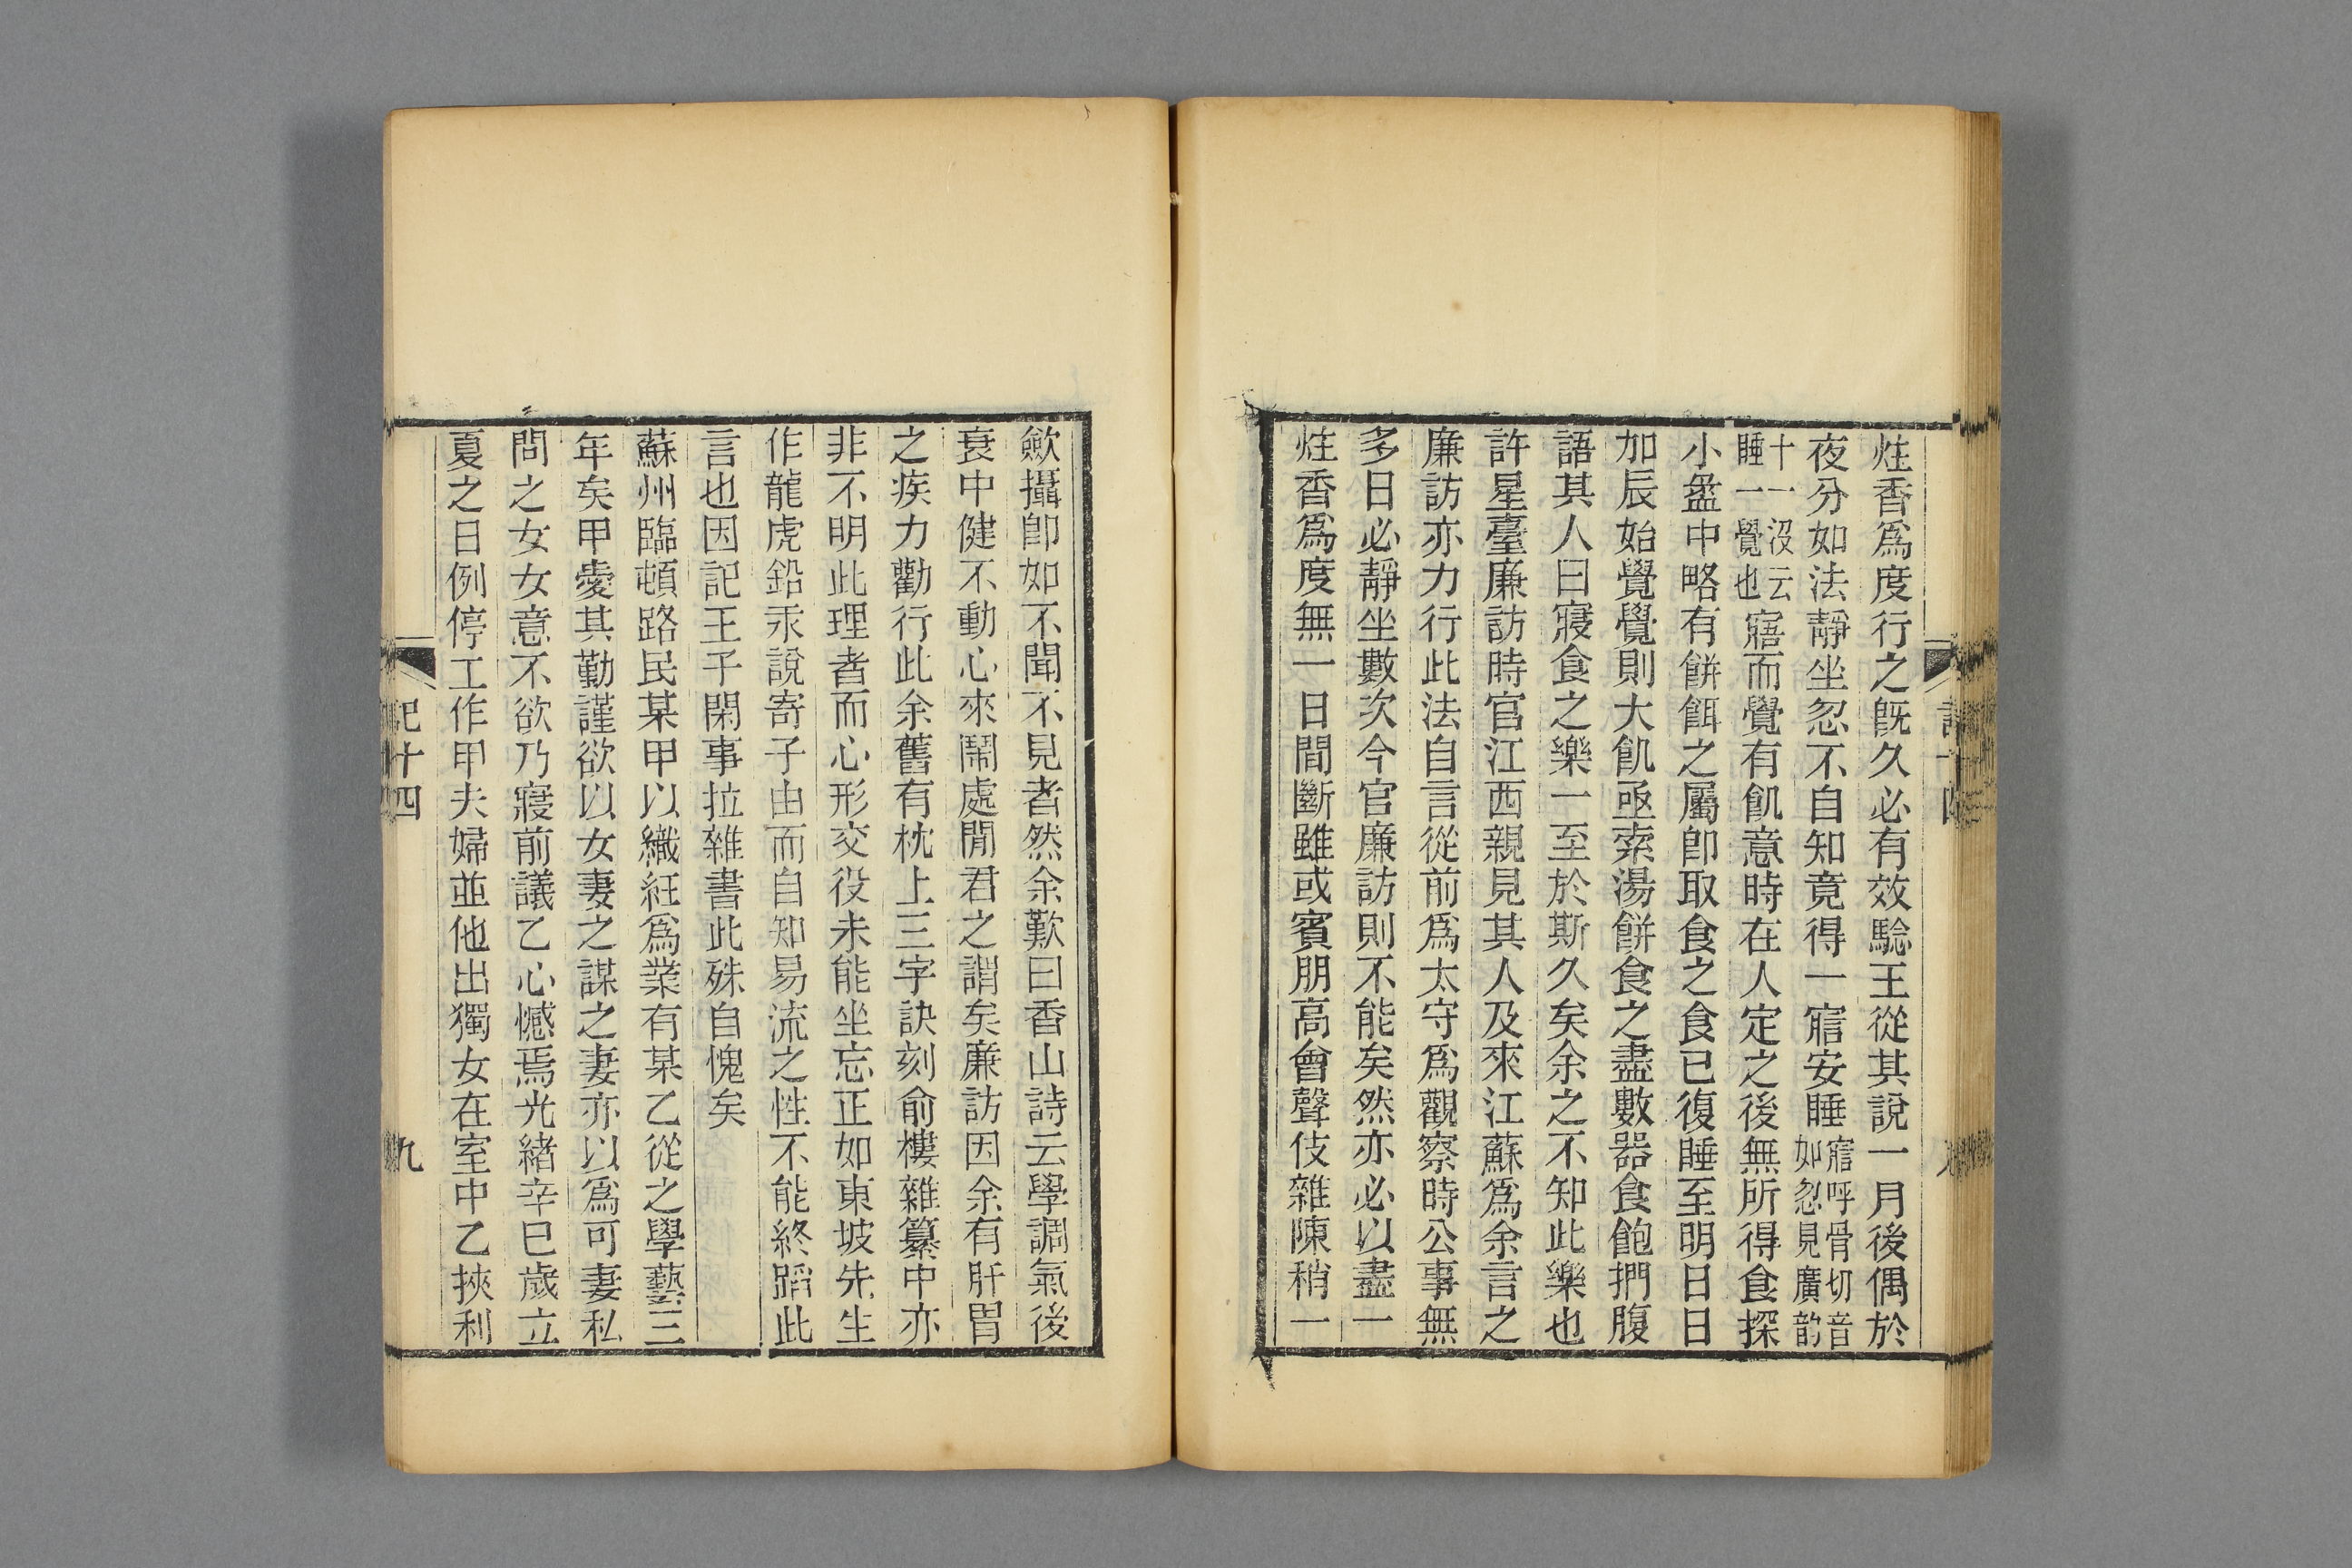 炷香爲度行之旣久必有效驗王從其說一月後偶於
夜分如法靜坐忽不自知竟得一㾓安睡㾓呼骨切音
如忽見廣韵
十一沒云
睡一覺也寤而覺有飢意時在人定之後無所得食探
小盌中略有餅餌之屬卽取食之食已復睡至明日日
加辰始覺覺則大飢亟索湯餅食之盡數器食飽捫腹
語其人曰寢食之樂一至於斯久矣余之不知此樂也
許星臺廉訪時官江西親見其人及來江蘇爲余言之
廉訪亦力行此法自言從前爲太守爲觀察時公事無
多日必靜坐數次今官廉訪則不能矣然亦必以盡一
炷香爲度無一日間斷雖或賓朋高會聲伎雜陳稍一
歛攝卽如不聞不見者然余歎曰香山詩云學調氣後
衰中健不動心來鬧處閒君之謂矣廉訪因余有肝胃
之疾力勸行此余舊有枕上三字訣刻俞樓雜纂中亦
非不明此理者而心形交役未能坐忘正如東坡先生
作龍虎鉛汞說寄子由而自知易流之性不能終蹈此
言也因記王子閑事拉雜書此殊自愧矣
蘇州臨頓路民某甲以織紝爲業有某乙從之學藝三
年矣甲愛其勤謹欲以女妻之謀之妻亦以爲可妻私
問之女女意不欲乃寢前議乙心憾焉光緒辛巳歲立
夏之日例停工作甲夫婦並他出獨女在室中乙挾利
記十四
九